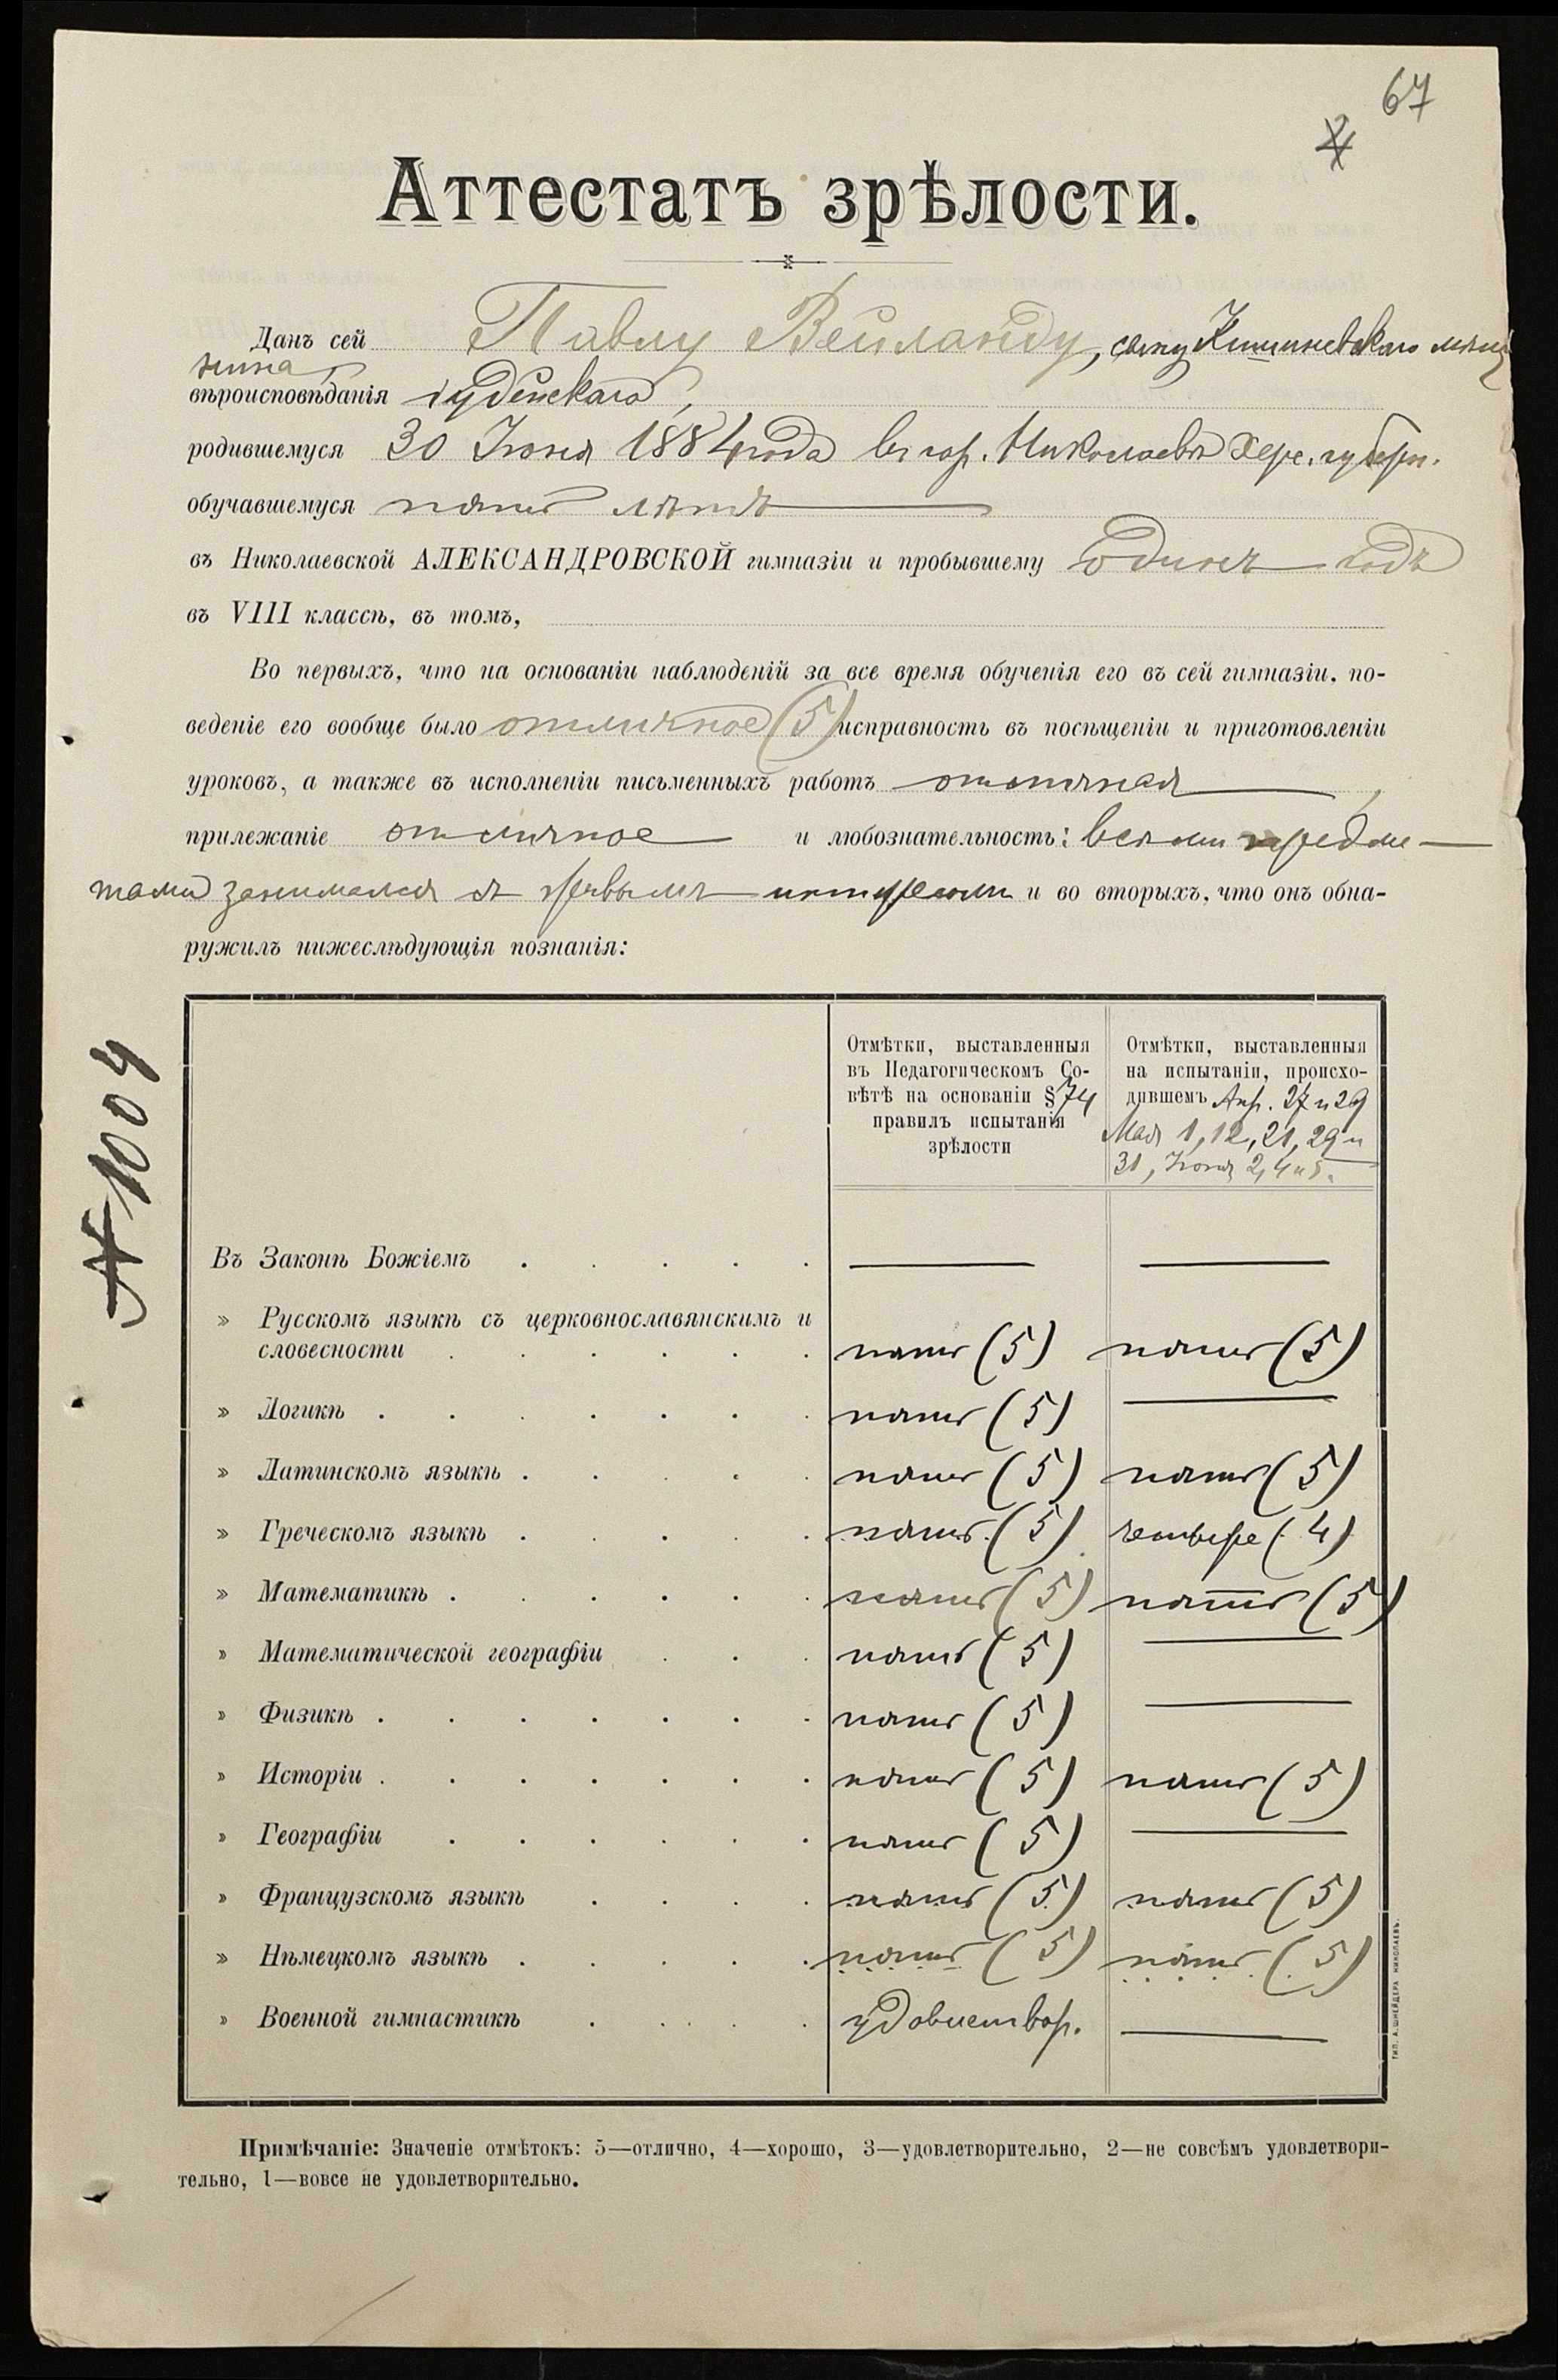 67
Аттестатъ зрѣлости.
Данъ сей Павлу Вейланду, сыну Кишиневскаго мѣща
нина,
вѣроисповѣданія іудейскаго,
родившемуся 30 Іюня 1884 года въ гор. Николаевѣ Херс. губерн.
обучавшемуся пять лѣтъ
въ Николаевской АЛЕКСАНДРОВСКОЙ гимназіи и пробывшему одинъ годъ
въ VIII классѣ, въ томъ,
Во первыхъ, что на основаніи наблюденій за все время обученія его въ сей гимназіи, по-
веденіе его вообще было отличное (5) исправность въ посѣщеніи и приготовленіи
уроковъ, а также въ исполненіи письменныхъ работъ отличная,
прилежаніе отличное и любознательность: всѣми предме-
тами занимался съ интересомъ и во вторыхъ, что онъ обна-
ружилъ нижеслѣдующія познанія:
№ 1004
Отмѣтки, выставленныя
въ Педагогическомъ Со-
вѣтѣ на основаніи § 74
правилъ испытанія
зрѣлости
Отмѣтки, выставленныя
на испытаніи, происхо-
дившемъ Апр. 27 и 29
Мая 1, 12, 21, 29 и
31, Іюня 2, 4 и 5.
Въ Законѣ Божіемъ
» Русскомъ языкѣ съ церковнославянскимъ и
словесности пять (5) пять (5)
» Логикѣ пять (5)
» Латинскомъ языкѣ пять (5) пять (5)
» Греческомъ языкѣ пять (5) четыре (4)
» Математикѣ пять (5) пять (5)
» Математической географіи пять (5)
» Физикѣ пять (5)
» Исторіи пять (5) пять (5)
» Географіи пять (5)
» Французскомъ языкѣ пять (5) пять (5)
» Нѣмецкомъ языкѣ пять (5) пять (5)
» Военной гимнастикѣ удовлетвор.
Примѣчаніе: Значеніе отмѣтокъ: 5—отлично, 4—хорошо, 3—удовлетворительно, 2—не совсѣмъ удовлетвори-
тельно, 1—вовсе не удовлетворительно.
ТИП. А. ШНЕЙДЕРА НИКОЛАЕВЪ.